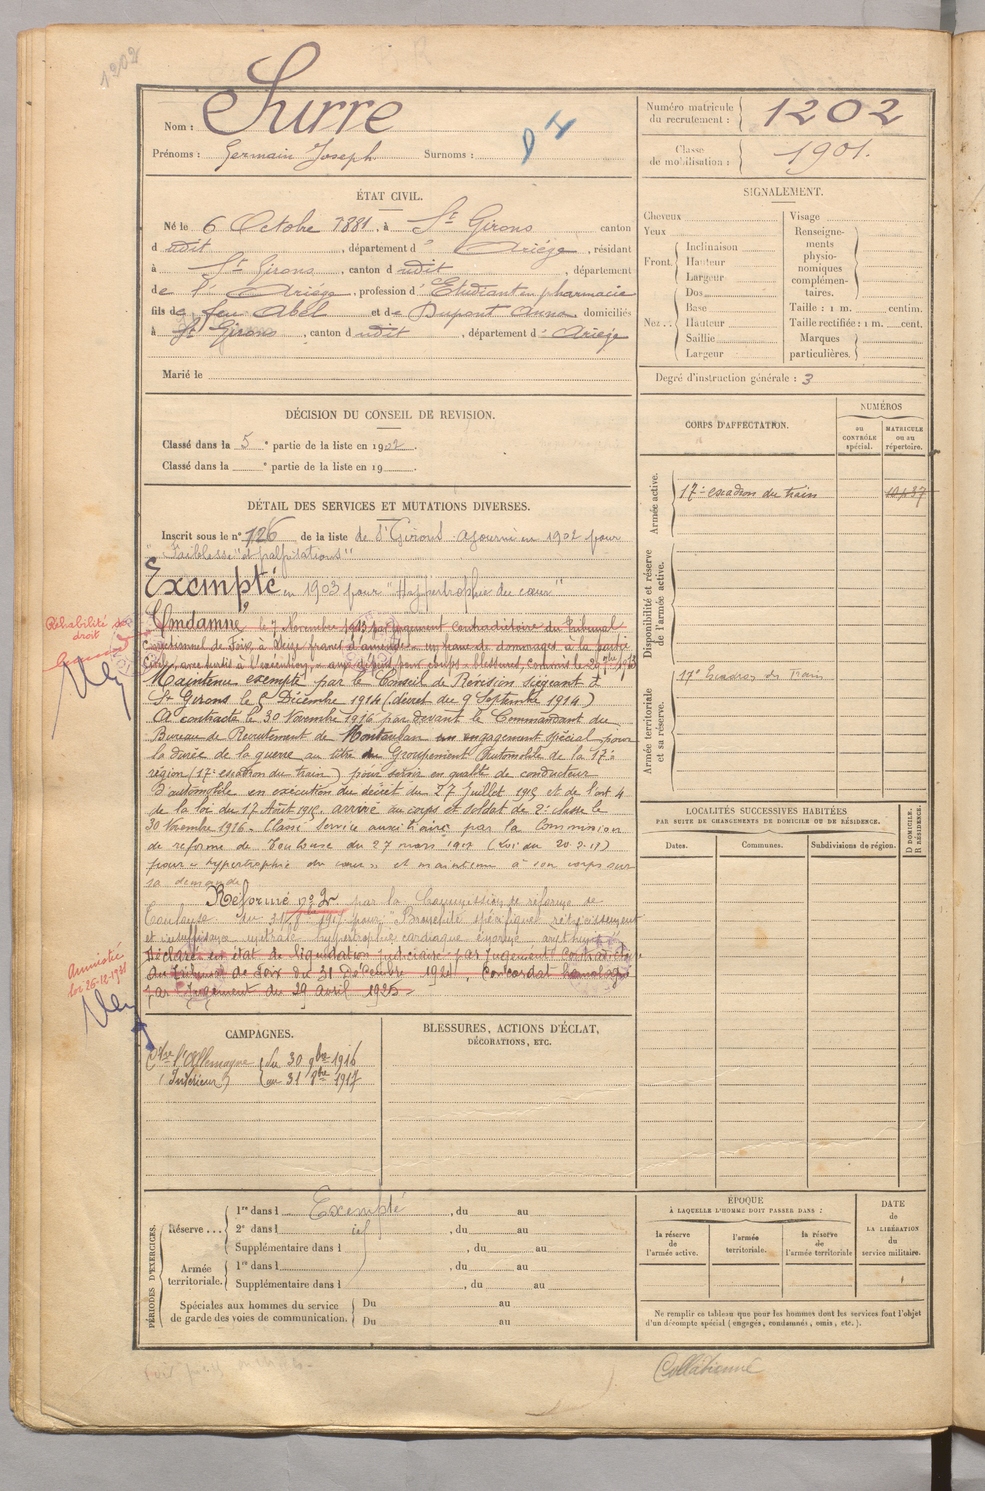 1202
Nom : Surre
Prénoms : Germain Joseph Surnoms :
Numéro matricule du recrutement : 1202
Classe de mobilisation : 1901.
ÉTAT CIVIL.
Né le 6 Octobre 1881, à St Girons canton
d udit, département d' Ariège, résidant
à St Girons, canton d udit, département
de l' Ariège, profession d' Etudiant en pharmacie
fils de feu Abel et de Dupont Anna, domiciliés
à St Girons, canton d udit, département d' Ariège
Marié le
SIGNALEMENT.
Cheveux
Yeux
Front. Inclinaison
Hauteur
Largeur
Nez. Dos
Base
Hauteur
Saillie
Largeur
Visage
Renseignements physionomiques complémentaires.
Taille : 1 m. centim.
Taille rectifiée : 1 m. cent.
Marques particulières.
Degré d'instruction générale : 3
DÉCISION DU CONSEIL DE REVISION.
Classé dans la 5e partie de la liste en 1902.
Classé dans la e partie de la liste en 19
CORPS D'AFFECTATION.
NUMÉROS
au CONTRÔLE spécial.
MATRICULE ou au répertoire.
Armée active.
17e escadron du train
Disponibilité et réserve de l'armée active.
Armée territoriale et sa réserve.
17e Escadron du Train
DÉTAIL DES SERVICES ET MUTATIONS DIVERSES.
Inscrit sous le n° 126 de la liste de St Girons. Ajourné en 1902 pour
"Faiblesse" et palpitations"
Exempté en 1903 pour "Hypertrophie du cœur"
Réhabilité de droit
Condamné le 7 Novembre 1913 par jugement contradictoire du Tribunal
Correctionnel de Foix, à Seize francs d'amende & un franc de dommages à la partie
civile, avec sursis à l'exécution, & aux dépens, pour coups & blessures, commis le 20 1913
Maintenu exempté par le Conseil de Revision siégeant à
St Girons le Décembre 1914 (décret du 9 Septembre 1914)
A contracté le 30 Novembre 1916 par devant le Commandant du
Bureau de Recrutement de Montauban un engagement spécial pour
la durée de la guerre au titre du Groupement Automobile de la 17e
région (17e escadron du train) pour servir en qualité de conducteur
d'automobile en exécution du décret du 27 Juillet 1915 et de l'art 4
de la loi du 17 Août 1915, arrivé au corps et soldat de 2e classe le
30 Novembre 1916. Classé service auxiliaire par la Commission
de réforme de Toulouse du 27 mars 1917 (Loi du 20.2.17)
pour "hypertrophie du cœur" et maintenu à son corps sur
sa demande
Réformé n° 2 par la Commission de réforme de
Toulouse du 31 1917 pour "Bronchite spécifique rétrécissement
et insuffisance mitrale hypertrophie cardiaque énorme arythmie"
Amnistié loi 26-12-1931
Déclaré en état de liquidation judiciaire par jugement contradictoire
du Tribunal de Foix du 31 Décembre 1924, Concordat homologué
par Jugement du 29 Avril 1925
LOCALITÉS SUCCESSIVES HABITÉES
PAR SUITE DE CHANGEMENTS DE DOMICILE OU DE RÉSIDENCE.
Dates.
Communes.
Subdivisions de région.
D DOMICILE. R RÉSIDENCE.
CAMPAGNES.
Ctre l'Allemagne du 30 9bre 1916
(Intérieur) au 31 8bre 1917
BLESSURES, ACTIONS D'ÉCLAT,
DÉCORATIONS, ETC.
PÉRIODES D'EXERCICES.
Réserve... 1re dans l Exempté, du au
2e dans l id, du au
Supplémentaire dans l, du au
Armée territoriale. 1re dans l, du au
Supplémentaire dans l, du au
Spéciales aux hommes du service de garde des voies de communication. Du au
Du au
ÉPOQUE
À LAQUELLE L'HOMME DOIT PASSER DANS :
la réserve de l'armée active.
l'armée territoriale.
la réserve de l'armée territoriale
DATE de LA LIBÉRATION du service militaire.
Ne remplir ce tableau que pour les hommes dont les services font l'objet
d'un décompte spécial (engagés, condamnés, omis, etc.).
Collationné